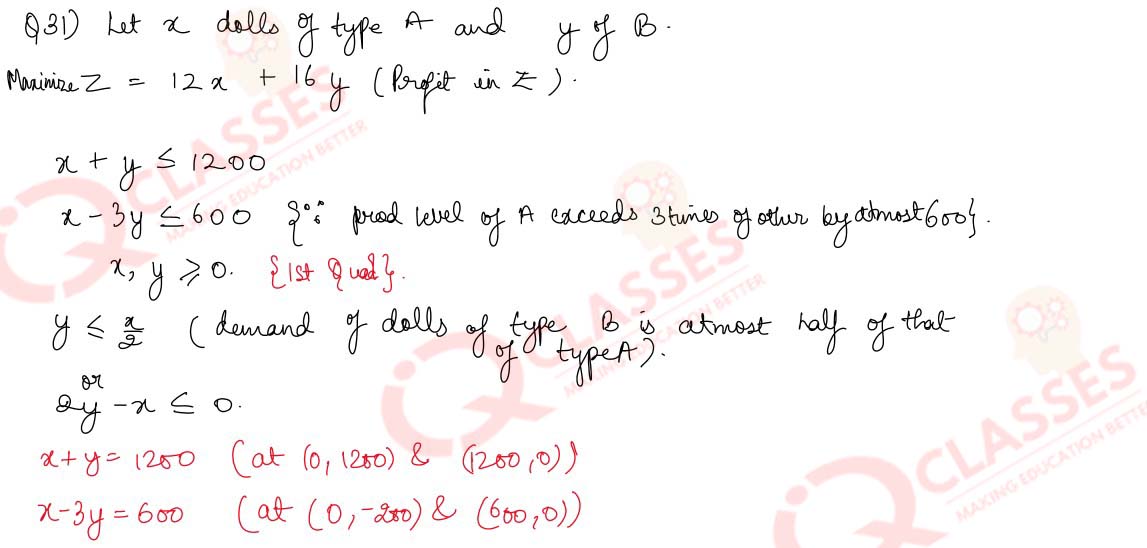 Q31) Let x dolls of type A and y of B.
Maximize Z = 12x + 16y (Profit in ₹).
x + y ≤ 1200
x - 3y ≤ 600 {∵ prod level of A exceeds 3 times of other by atmost 600}.
x, y ≥ 0. {1st Quad}.
y ≤ x/2 (demand of dolls of type B is atmost half of that
of type A).
or
2y - x ≤ 0.
x + y = 1200 (at (0, 1200) & (1200, 0))
x - 3y = 600 (at (0, -200) & (600, 0))
IQ CLASSES
MAKING EDUCATION BETTER
IQ CLASSES
MAKING EDUCATION BETTER
IQ CLASSES
MAKING EDUCATION BETTER